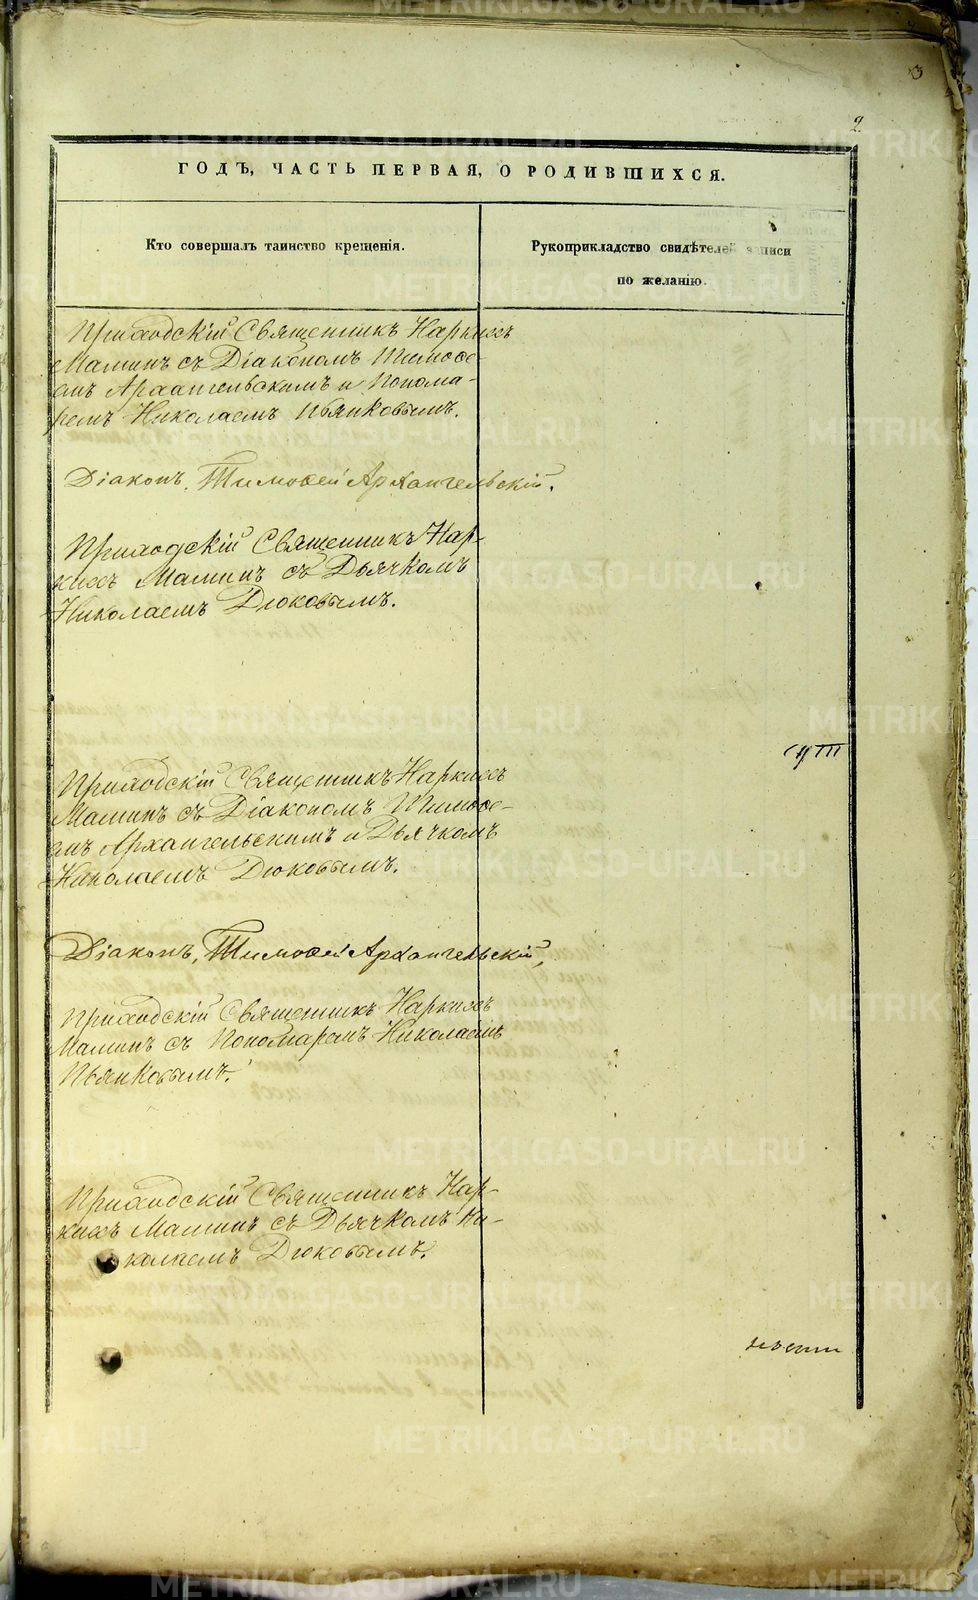 3
2
ГОДЪ, ЧАСТЬ ПЕРВАЯ, О РОДИВШИХСЯ.
Кто совершалъ таинство крещенія.
Рукоприкладство свидѣтелей записи
по желанію.
Приходскій Священникъ Наркиссъ
Маминъ съ Діакономъ Тимоѳе-
емъ Архангельскимъ и Понома-
ремъ Николаемъ Пьянковымъ.
Діаконъ, Тимоѳей Архангельскій.
Приходскій Священникъ Нар-
киссъ Маминъ съ Дьячкомъ
Николаемъ Дюковымъ.
Приходскій Священникъ Наркиссъ
Маминъ съ Діакономъ Тимоѳе-
емъ Архангельскимъ и Дьячкомъ
Николаемъ Дюковымъ.
Діаконъ, Тимоѳей Архангельскій,
Приходскій Священникъ Наркиссъ
Маминъ съ Пономаремъ Николаемъ
Пьянковымъ.
Приходскій Священникъ Нар-
киссъ Маминъ съ Дьячкомъ Ни-
колаемъ Дюковымъ.
METRIKI.GASO-URAL.RU